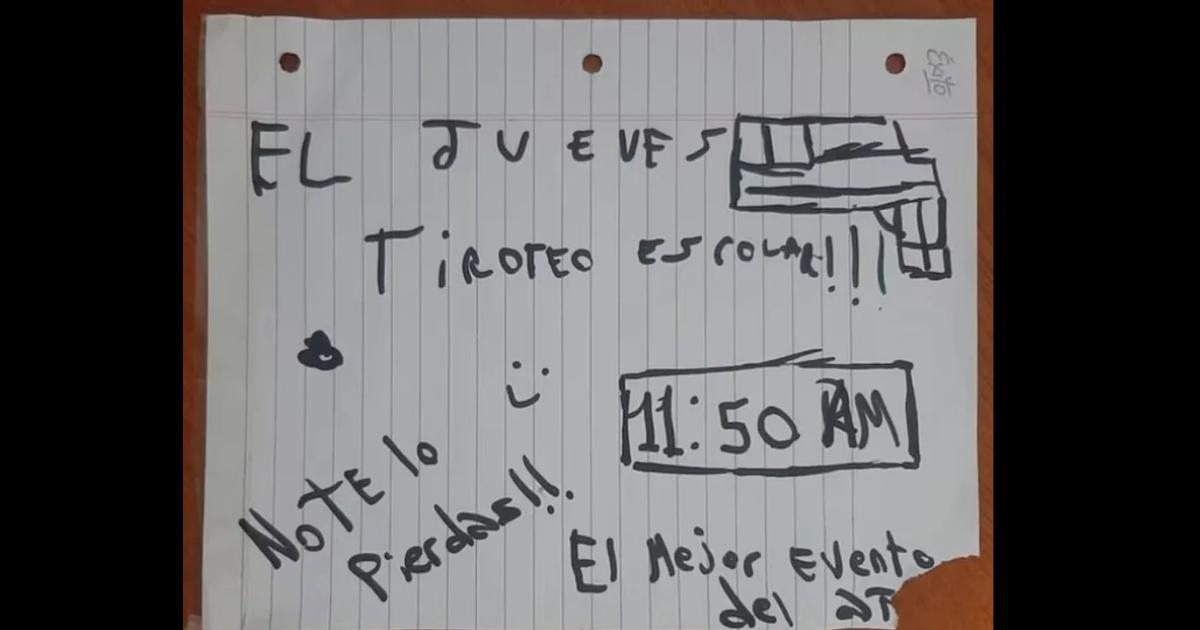 EXITO
EL JUEVES
TIROTEO ESCOLAR!!!
11:50 AM
NO TE lo
pierdas!!.
El Mejor Evento
del